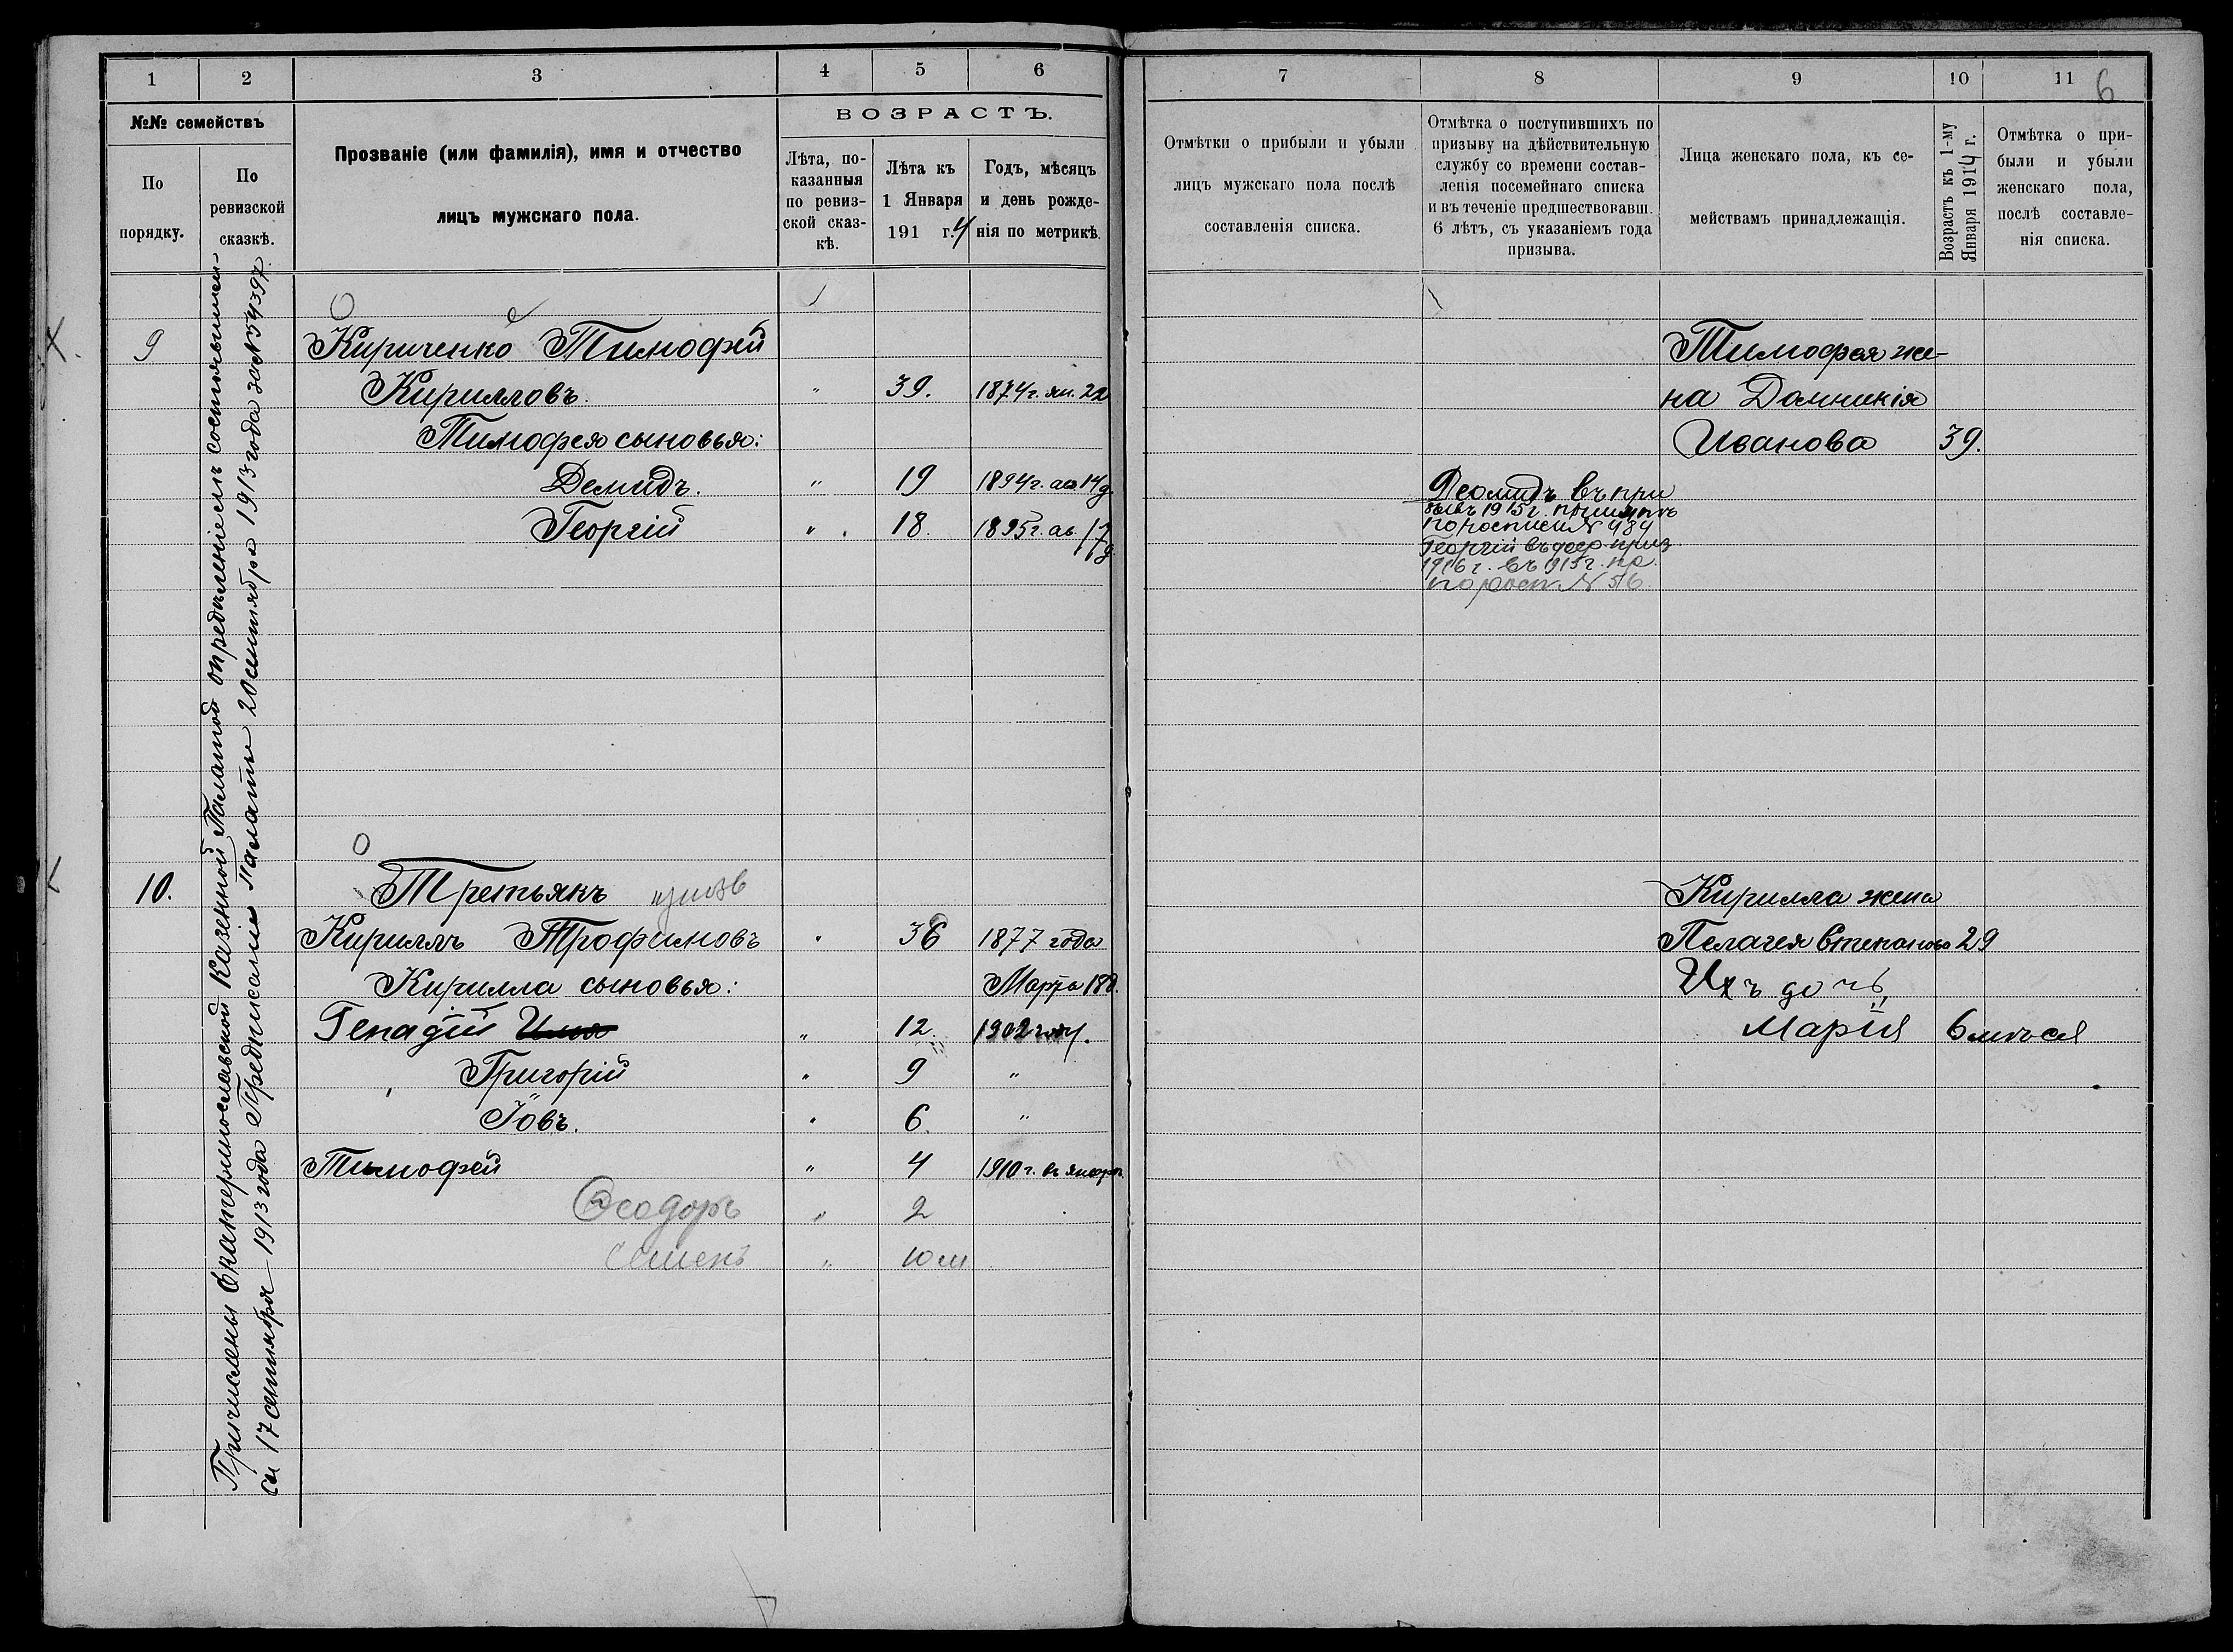 1 2 3 4 5 6
№№ семействъ
По порядку.
По ревизской сказкѣ.
Прозваніе (или фамилія), имя и отчество
лицъ мужскаго пола.
ВОЗРАСТЪ.
Лѣта, по-
казанныя
по ревиз-
ской сказ-
кѣ.
Лѣта къ
1 Января
1914 г.
Годъ, мѣсяцъ
и день рожде-
нія по метрикѣ.
Причислены Екатеринославской Казенной Палатой опредѣленіемъ состоявшим-
ся 17 сентября 1913 года Предписаніи Палаты 20 сентября 1913 года за № 54397
9 Кириченко Тимофей
Кирилловъ. " 39. 1874 г. ян. 22
Тимофея сыновья:
Демидъ. " 19 1894 г. ав. 14 д.
Георгій " 18. 1895 г. ав. 17 д.
10. Третьякъ
Кириллъ Трофимовъ " 36 1877 года
Кирилла сыновья: Марта 18 д.
Генадій " 12. 1902 году.
Григорій " 9 "
Іовъ. " 6. "
Тимофей " 4 1910 г. въ январѣ
Ѳеодоръ " 2
Семенъ " 10 м
7 8 9 10 11
6
Отмѣтки о прибыли и убыли
лицъ мужскаго пола послѣ
составленія списка.
Отмѣтка о поступившихъ по
призыву на дѣйствительную
службу со времени состав-
ленія посемейнаго списка
и въ теченіе предшествовавш.
6 лѣтъ, съ указаніемъ года
призыва.
Лица женскаго пола, къ се-
мействамъ принадлежащія.
Возрастъ къ 1-му
Января 1914 г.
Отмѣтка о при-
были и убыли
женскаго пола,
послѣ составле-
нія списка.
Тимофея же-
на Домникія
Иванова 39.
Деомидъ въ при
зывъ 1915 г. принятъ
по росписи № 484
Георгій въ доср. приз
1916 г. въ 1915 г. пр.
по росп. № 56.
Кирилла жена
Пелагея Степанова 29
Ихъ дочь
Марія 6 мѣся